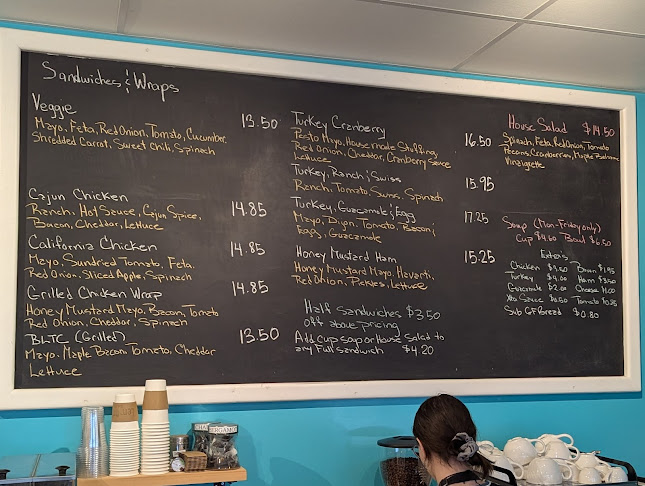 Sandwiches & Wraps
Veggie 13.50
Mayo, Feta, Red Onion, Tomato, Cucumber,
Shredded Carrot, Sweet Chili, Spinach
Cajun Chicken 14.85
Ranch, Hot Sauce, Cajun Spice,
Bacon, Cheddar, Lettuce
California Chicken 14.85
Mayo, Sundried Tomato, Feta,
Red Onion, Sliced Apple, Spinach
Grilled Chicken Wrap 14.85
Honey Mustard Mayo, Bacon, Tomato
Red Onion, Cheddar, Spinach
BLTC (Grilled) 13.50
Mayo, Maple Bacon, Tomato, Cheddar
Lettuce
Turkey Cranberry 16.50
Pesto Mayo, Housemade Stuffing,
Red Onion, Cheddar, Cranberry Sauce
Lettuce
Turkey, Ranch & Swiss 15.95
Ranch, Tomato, Swiss, Spinach
Turkey, Guacamole & Egg 17.25
Mayo, Dijon, Tomato, Bacon,
Egg, Guacamole
Honey Mustard Ham 15.25
Honey Mustard Mayo, Havarti,
Red Onion, Pickles, Lettuce
Half sandwiches $3.50
off above pricing
Add cup soup or House Salad to
any Full sandwich $4.20
House Salad $14.50
Spinach, Feta, Red Onion, Tomato
Pecans, Cranberries, Maple Balsamic
Vinaigrette
Soup (Mon-Friday only)
Cup $4.60 Bowl $6.50
Extra's
Chicken Bacon $1.95
Turkey $4.00 Ham $3.50
Guacamole $2.00 Cheese
Sauce Tomato
Sub GF Bread $0.80
BERGAMOT